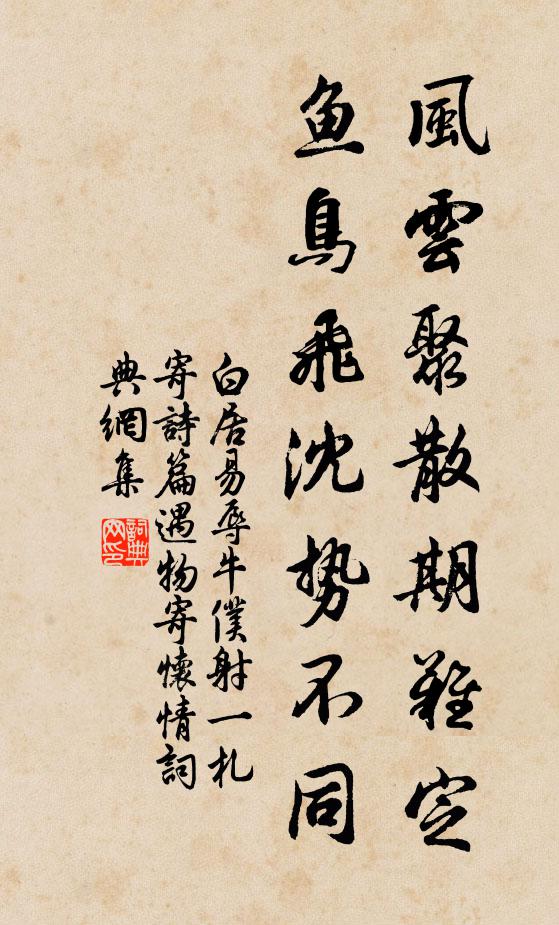 風雲聚散期難定
鱼鳥飛沈勢不同
白居易辱牛僕射一札
寄詩篇遇物寄懷情詞
典網集
詞典
网印